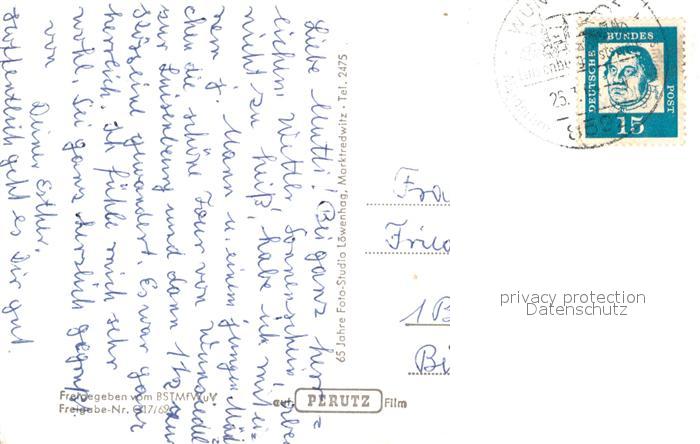 Liebe Mutti! Bei ganz herr=
lichem Wetter, Sonnenschein, aber
nicht zu heiß, habe ich mit ei=
nem j. Mann u. einem jungen Mäd
chen die schöne Tour von Wunsiedel
zur Luisenburg und dann 1½
gewandert. Es war ganz
herrlich. Ich fühle mich sehr
wohl. Sei ganz herzlich gegrüßt
von
Deiner Esther.
Hoffentlich geht es Dir gut
65 Jahre Foto-Studio Löwenhag, Marktredwitz · Tel. 2475
Freigegeben vom BSTMfWuV
Freigabe-Nr. G17/62
auf PERUTZ Film
WUN
25.
DEUTSCHE BUNDES POST
15
Fra
Fried
1 B
privacy protection
Datenschutz